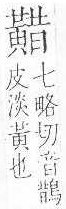 七略切音鵲
皮淡黃也